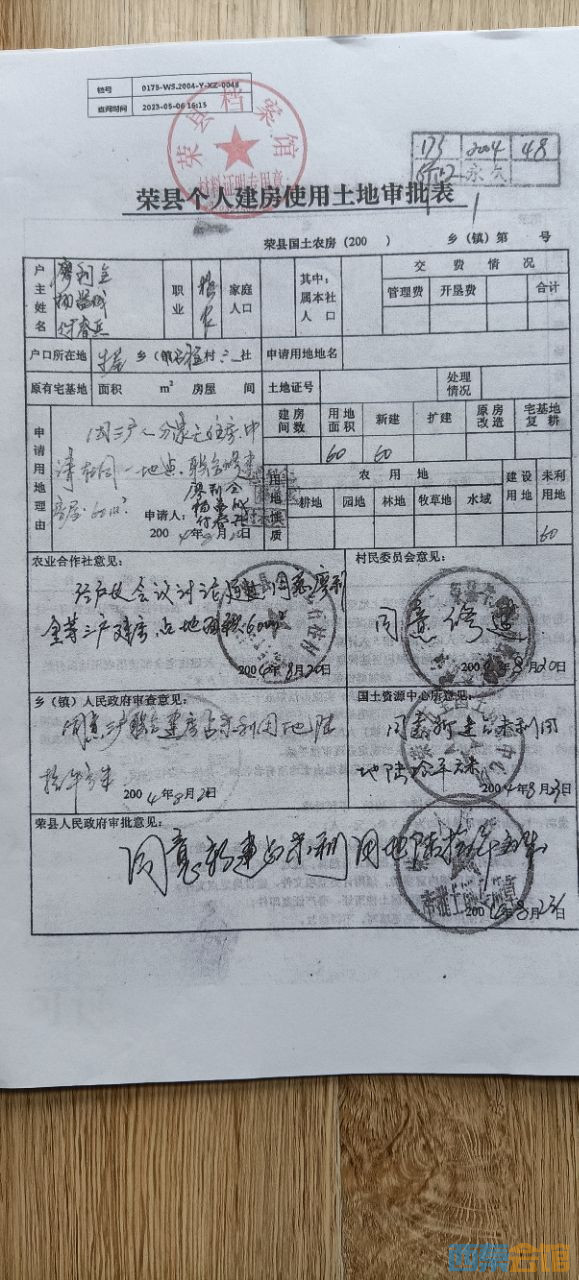 档号 0175-WS.2004-Y-XZ-0048
查阅时间 2023-05-06 16:15
荣县档案馆
材料证明专用章
173 2004 48
永久
荣县个人建房使用土地审批表
荣县国土农房（200 ）乡（镇）第 号
户主姓名 廖利全
职业
家庭人口
其中：属本社人口
交费情况
管理费 开垦费 合计
户口所在地 乡（镇） 村 社 申请用地地名
原有宅基地 面积 m² 房屋 间 土地证号 处理情况
申请用地理由
因三户人分家无住房.申
请在同一地点.联合修建
房屋.60m².
申请人：廖利全
2004年8月20日
建房间数 用地面积 新建 扩建 原房改造 宅基地复耕
60 60
用地性质
农用地 建设用地 未利用地
耕地 园地 林地 牧草地 水域
60
农业合作社意见：
经户代会议讨论通过同意廖利
全等三户建房占地面积60m²
2004年8月20日
村民委员会意见：
同意修建.
2004年8月20日
乡（镇）人民政府审查意见：
同意三户联合建房占未利用地陆
拾平方米
2004年8月2日
国土资源中心所意见：
同意新建占未利用
地陆拾平方米
2004年8月23日
荣县人民政府审批意见：
同意新建占未利用地陆拾平方米
2004年8月23日